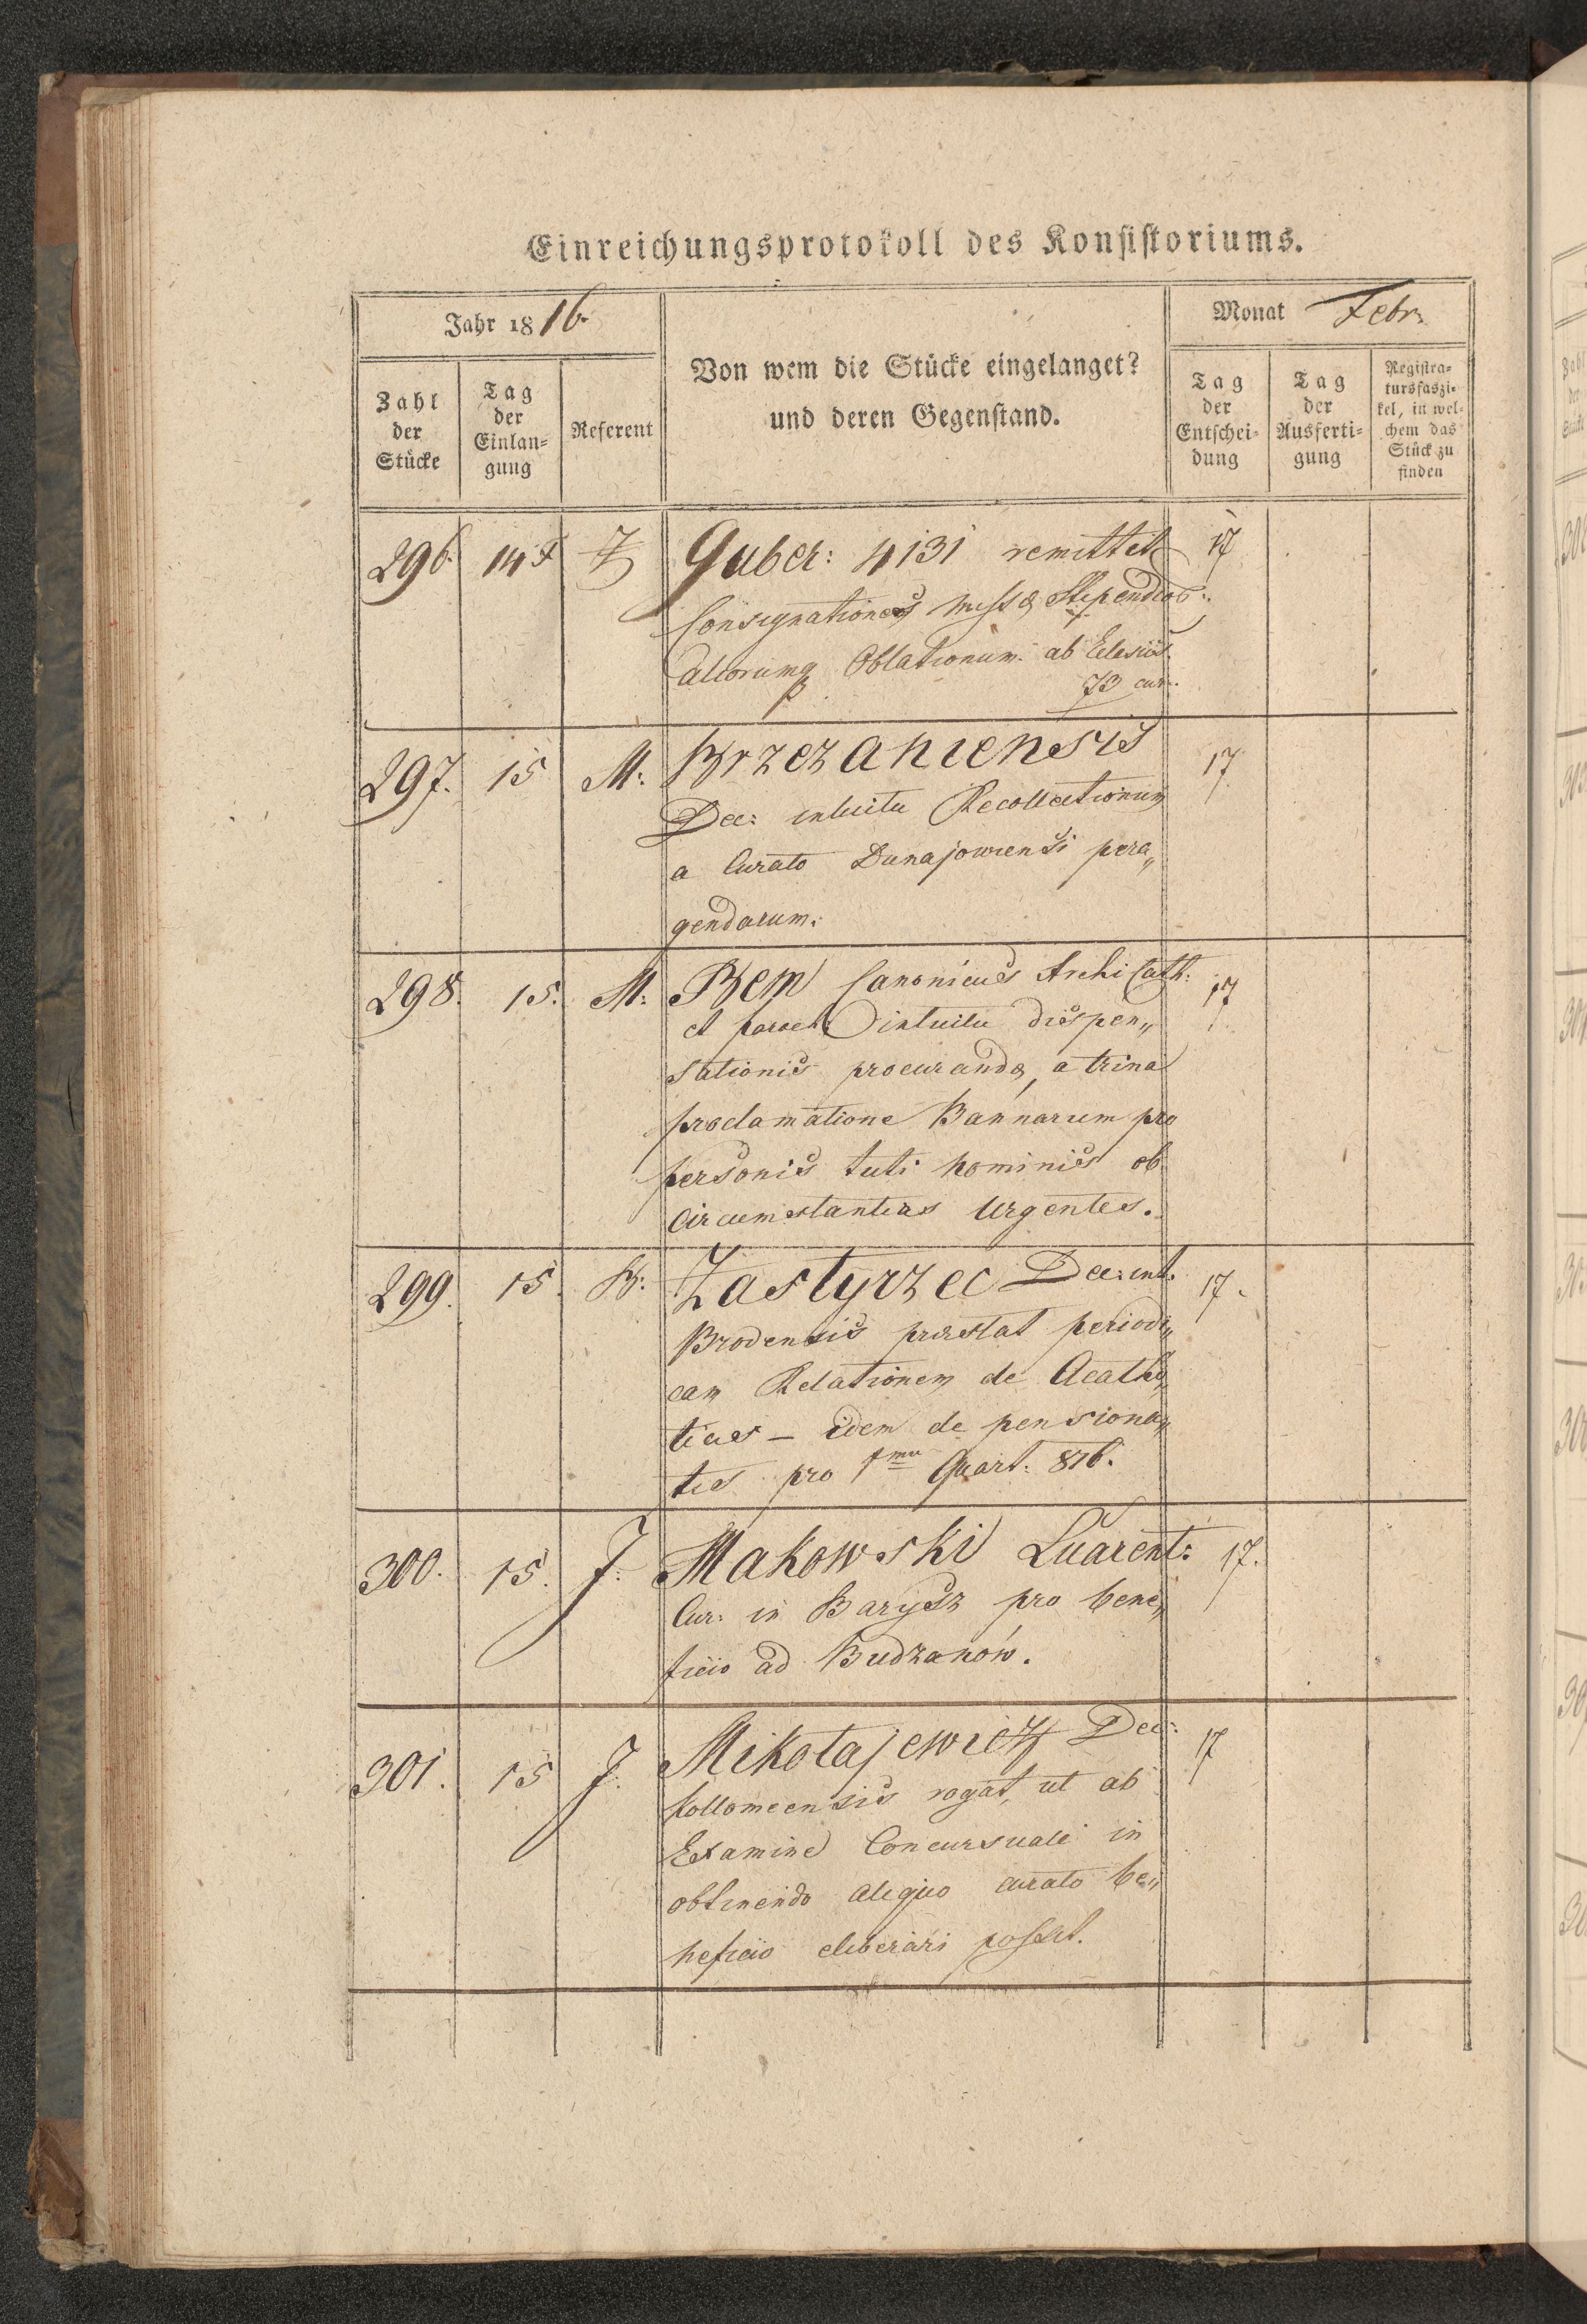 Einreichungsprotokoll des Konsistoriums.
Jahr 1816.
Monat Febr.
Zahl der Stücke
Tag der Einlangung
Referent
Von wem die Stücke eingelanget?
und deren Gegenstand.
Tag der Entscheidung
Tag der Ausfertigung
Registratursfaszikel, in welchem das Stück zu finden
296. 14 Z Guber: 4131 remittet 17
Consignationes
aliorumq Oblationum ab
73 cur.
297. 15 M: Brzezaniensis 17
Dec: intuitu Recollectionum
a Curato Dunajowiensi pera„
gendarum.
298. 15. M: Bem Canonicus Archi Cath: 17
et intuitu dispen„
sationis procuranda, a trina
proclamatione Bannarum pro
personis tuti hominis ob
Circumstantias Urgentes.
299. 15. B: Zastyrzec Dec: int. 17.
Brodensis præstat periodi„
cam Relationem de Acatho„
licis – idem de pensiona„
tis pro 1mu Quart: 816.
300. 15. J: Makowski Luarent: 17.
Cur: in Barysz pro bene„
ficio ad Budzanów.
301. 15 J: Mikołajewicz Dec: 17
Kollomeensis rogat, ut ab
Examine Concursuali in
obtinendo aliquo curato be„
neficio eliberari posset.